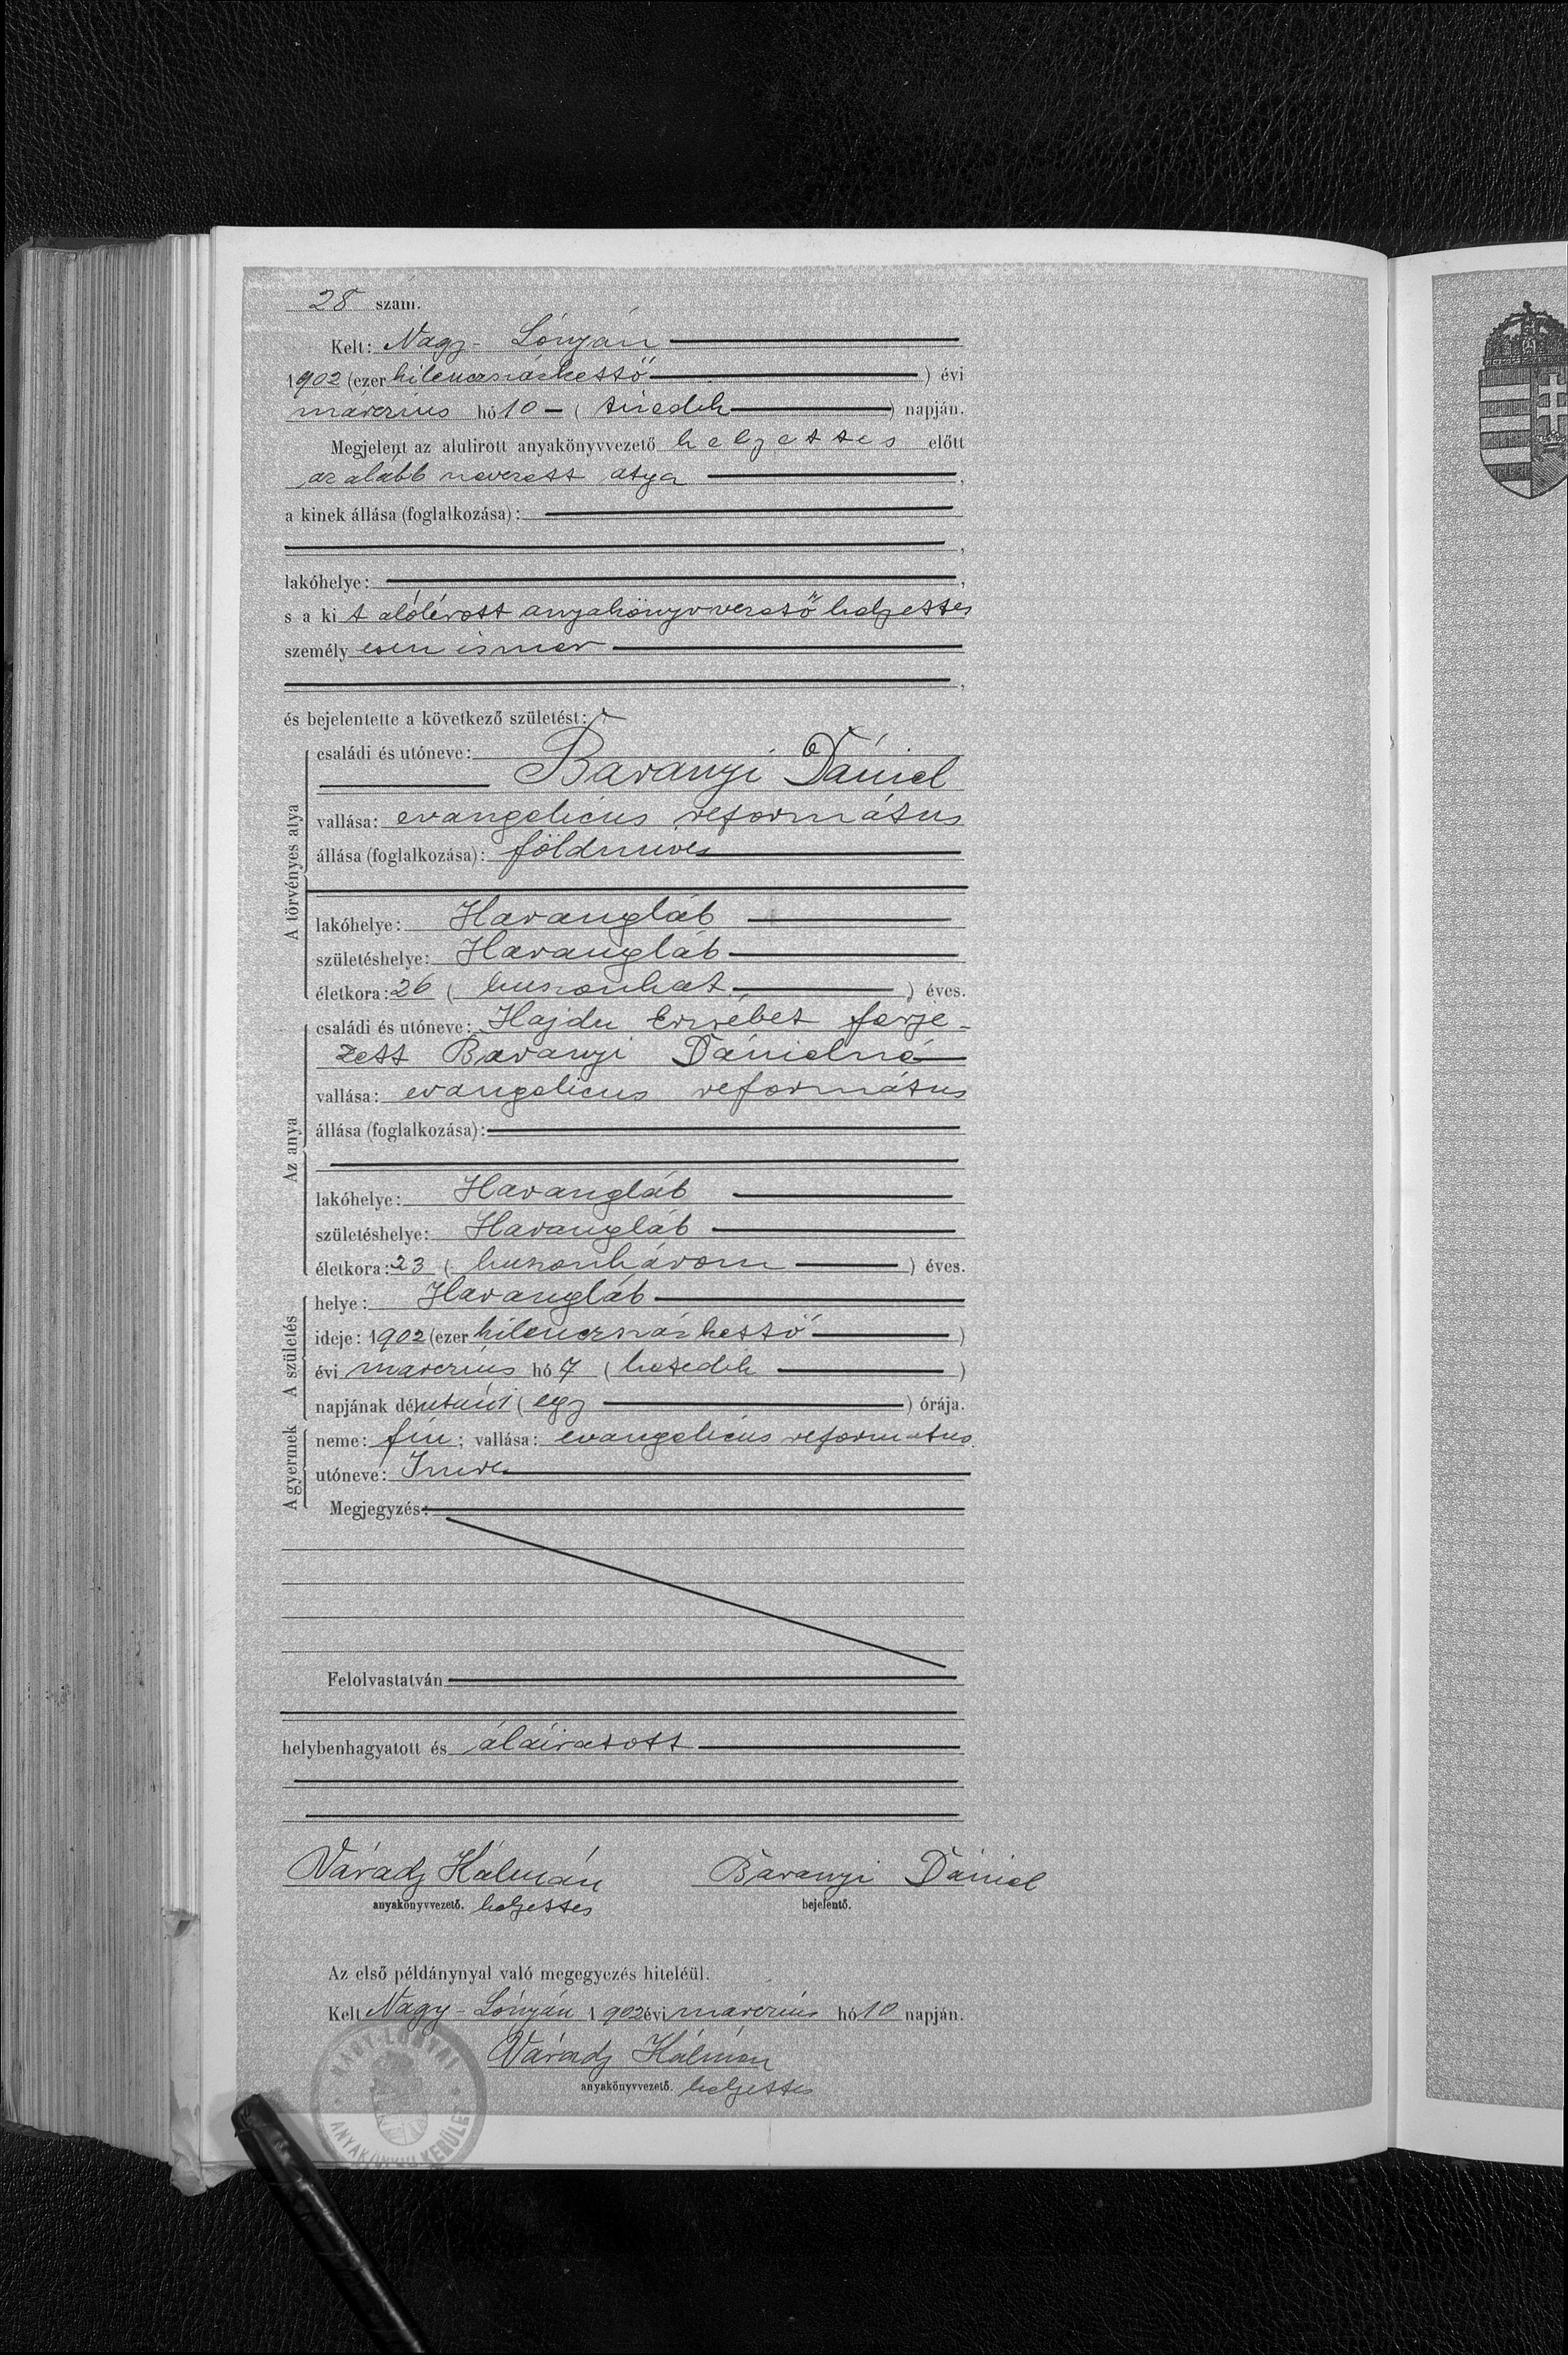 28 szám.
Kelt: Nagy-Lónyán
1902 (ezer kilenczszázkettő) évi
márczius hó 10 (tizedik) napján.
Megjelent az alulirott anyakönyvvezető helyettes előtt
az alább nevezett atya,
a kinek állása (foglalkozása):
,
lakóhelye: ,
s a kit alólírott anyakönyvvezető helyettes
személyesen ismer
,
és bejelentette a következő születést:
A törvényes atya
családi és utóneve:
Baranyi Dániel
vallása: evangelicus református
állása (foglalkozása): földmíves
lakóhelye: Harangláb
születéshelye: Harangláb
életkora: 26 (huszonhat) éves.
Az anya
családi és utóneve: Hajdu Erzsébet férje-
zett Baranyi Dánielné
vallása: evangelicus református
állása (foglalkozása):
lakóhelye: Harangláb
születéshelye: Harangláb
életkora: 23 (huszonhárom) éves.
A születés
helye: Harangláb
ideje: 1902 (ezer kilenczszázkettő)
évi márczius hó 7 (hetedik)
napjának délutáni (egy) órája.
A gyermek
neme: fiú; vallása: evangelicus reformatus
utóneve: Imre
Megjegyzés:
Felolvastatván
helybenhagyatott és aláiratott
Várady Kálmán Baranyi Dániel
anyakönyvvezető. helyettes bejelentő.
Az első példánynyal való megegyezés hiteléül.
Kelt Nagy-Lónyán 1902 évi márczius hó 10 napján.
Várady Kálmán
anyakönyvvezető. helyettes
NAGY-LÓNYAI
ANYAKÖNYVI KERÜLET